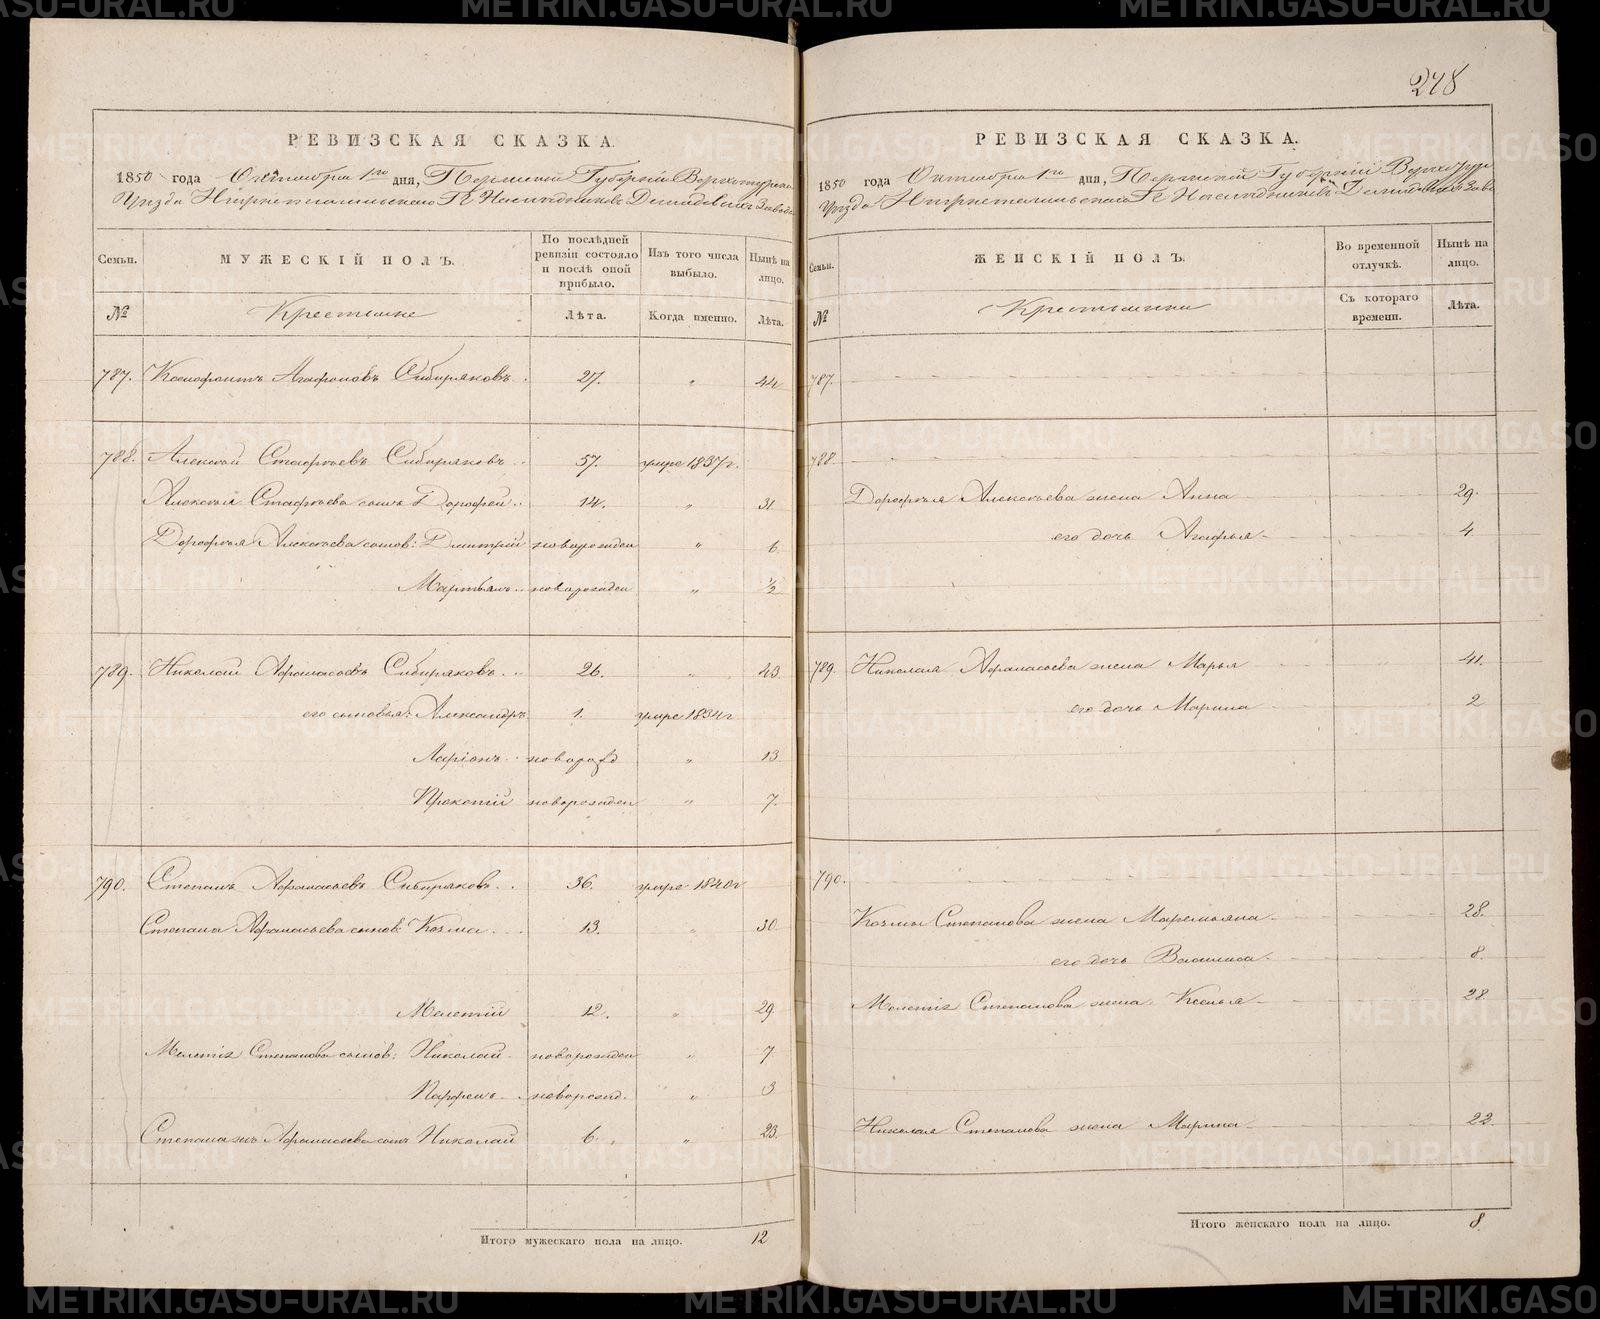 278
РЕВИЗСКАЯ СКАЗКА.
1850 года Октября 1го дня, Пермской Губернiи Верхотурска
Уезда Нижнетагильскаго Гг Наследниковъ Демидовыхъ Завода
Семьи.
МУЖЕСКIЙ ПОЛЪ.
По послѣдней ревизiи состояло и послѣ оной прибыло.
Изъ того числа выбыло.
Нынѣ на лицо.
№
Крестьяне
Лѣта.
Когда именно.
Лѣта.
787. Ксенофонтъ Агафоновъ Сибиряковъ. 27. " 44
788. Алексей Стафеевъ Сибиряковъ. 57. умре 1837г.
Алексея Стафеева сынъ Дорофей. 14. " 31.
Дорофея Алексеева сынов: Дмитрiй новорожден " 6
Мартьянъ новорожден " ½
789. Николай Афанасьевъ Сибиряковъ. 26. " 43.
его сыновья: Александръ 1. умре 1834г
Ларiонъ новорожд " 13
Прокопiй новорожден " 7.
790. Степанъ Афанасьевъ Сибиряковъ. 36. умре 1840г
Степана Афанасьева сынов: Козма. 13. " 30
Мелетiй 12. " 29
Мелетiя Степанова сынов: Николай новорожден " 7
Парфенъ новорожд. " 3
Степана Афанасьева сынъ Николай 6. " 23.
Итого мужескаго пола на лицо. 12
РЕВИЗСКАЯ СКАЗКА.
1850 года Октября 1го дня, Пермской Губернiй Верхотур
Уезда Нижнетагильскаго Гг Наследниковъ Демидовыхъ Заво
Семьи.
ЖЕНСКIЙ ПОЛЪ.
Во временной отлучкѣ.
Нынѣ на лицо.
№
Крестьянки
Съ котораго времени.
Лѣта.
787.
788.
Дорофея Алексеева жена Анна 29.
его дочь Агафья 4.
789. Николая Афанасьева жена Марья 41.
его дочь Марина 2
790.
Козмы Степанова жена Маремьяна 28.
его дочь Василиса 8.
Мелетiя Степанова жена Ксенья 28.
Николая Степанова жена Марина 22.
Итого женскаго пола на лицо. 8.
METRIKI.GASO-URAL.RU